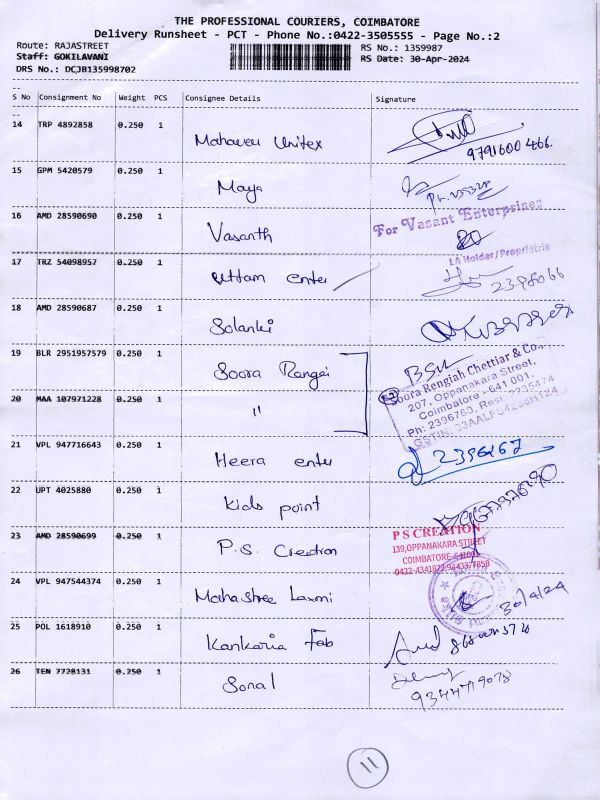 THE PROFESSIONAL COURIERS, COIMBATORE
Delivery Runsheet - PCT - Phone No.:0422-3505555 - Page No.:2
Route: RAJASTREET
RS No.: 1359987
Staff: GOKILAVANI
RS Date: 30-Apr-2024
DRS No.: DCJB135998702
S No Consignment No Weight PCS Consignee Details Signature
14 TRP 4892858 0.250 1 Mahaveer Unitex
9791600466
15 GPM 5420579 0.250 1 Maya
16 AMD 28590690 0.250 1 Vasanth
For Vasant Enterprises
LA Holder/Proprietrix
17 TRZ 54098957 0.250 1 uttam enter
2398066
18 AMD 28590687 0.250 1 Solanki
19 BLR 2951957579 0.250 1 Soora Rangai
Soora Rengiah Chettiar & Co.,
207, Oppanakara Street,
Coimbatore - 641 001.
Ph: 2396760, Resi: 2235474
20 MAA 107971228 0.250 1 "
21 VPL 947716643 0.250 1 Heera enter
2396267
22 UPT 4025880 0.250 1 kids point
23 AMD 28590699 0.250 1 P.S. Creation
P S CREATION
139,OPPANAKARA STREET
COIMBATORE-641001
24 VPL 947544374 0.250 1 Mahashree Laxmi
30/4/24
25 POL 1618910 0.250 1 Kankaria Fab
26 TEN 7728131 0.250 1 Sonal
9344719078
11